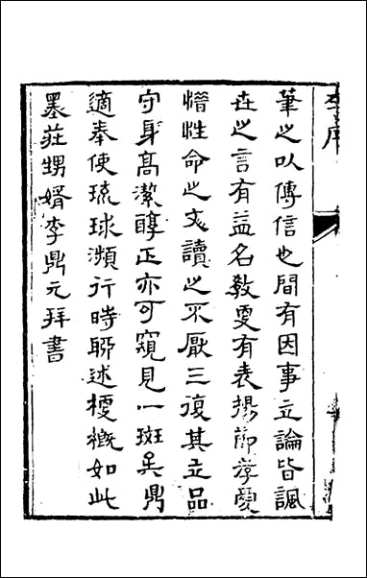 筆之以傳信也間有因事立論皆諷
世之言有益名敎更有表揚節孝變
惜性命之文讀之不厭三復其立品
守身高潔醇正亦可窺見一斑矣鼎
適奉使琉球瀕行時聊述梗槪如此
墨莊甥婿李鼎元拜書